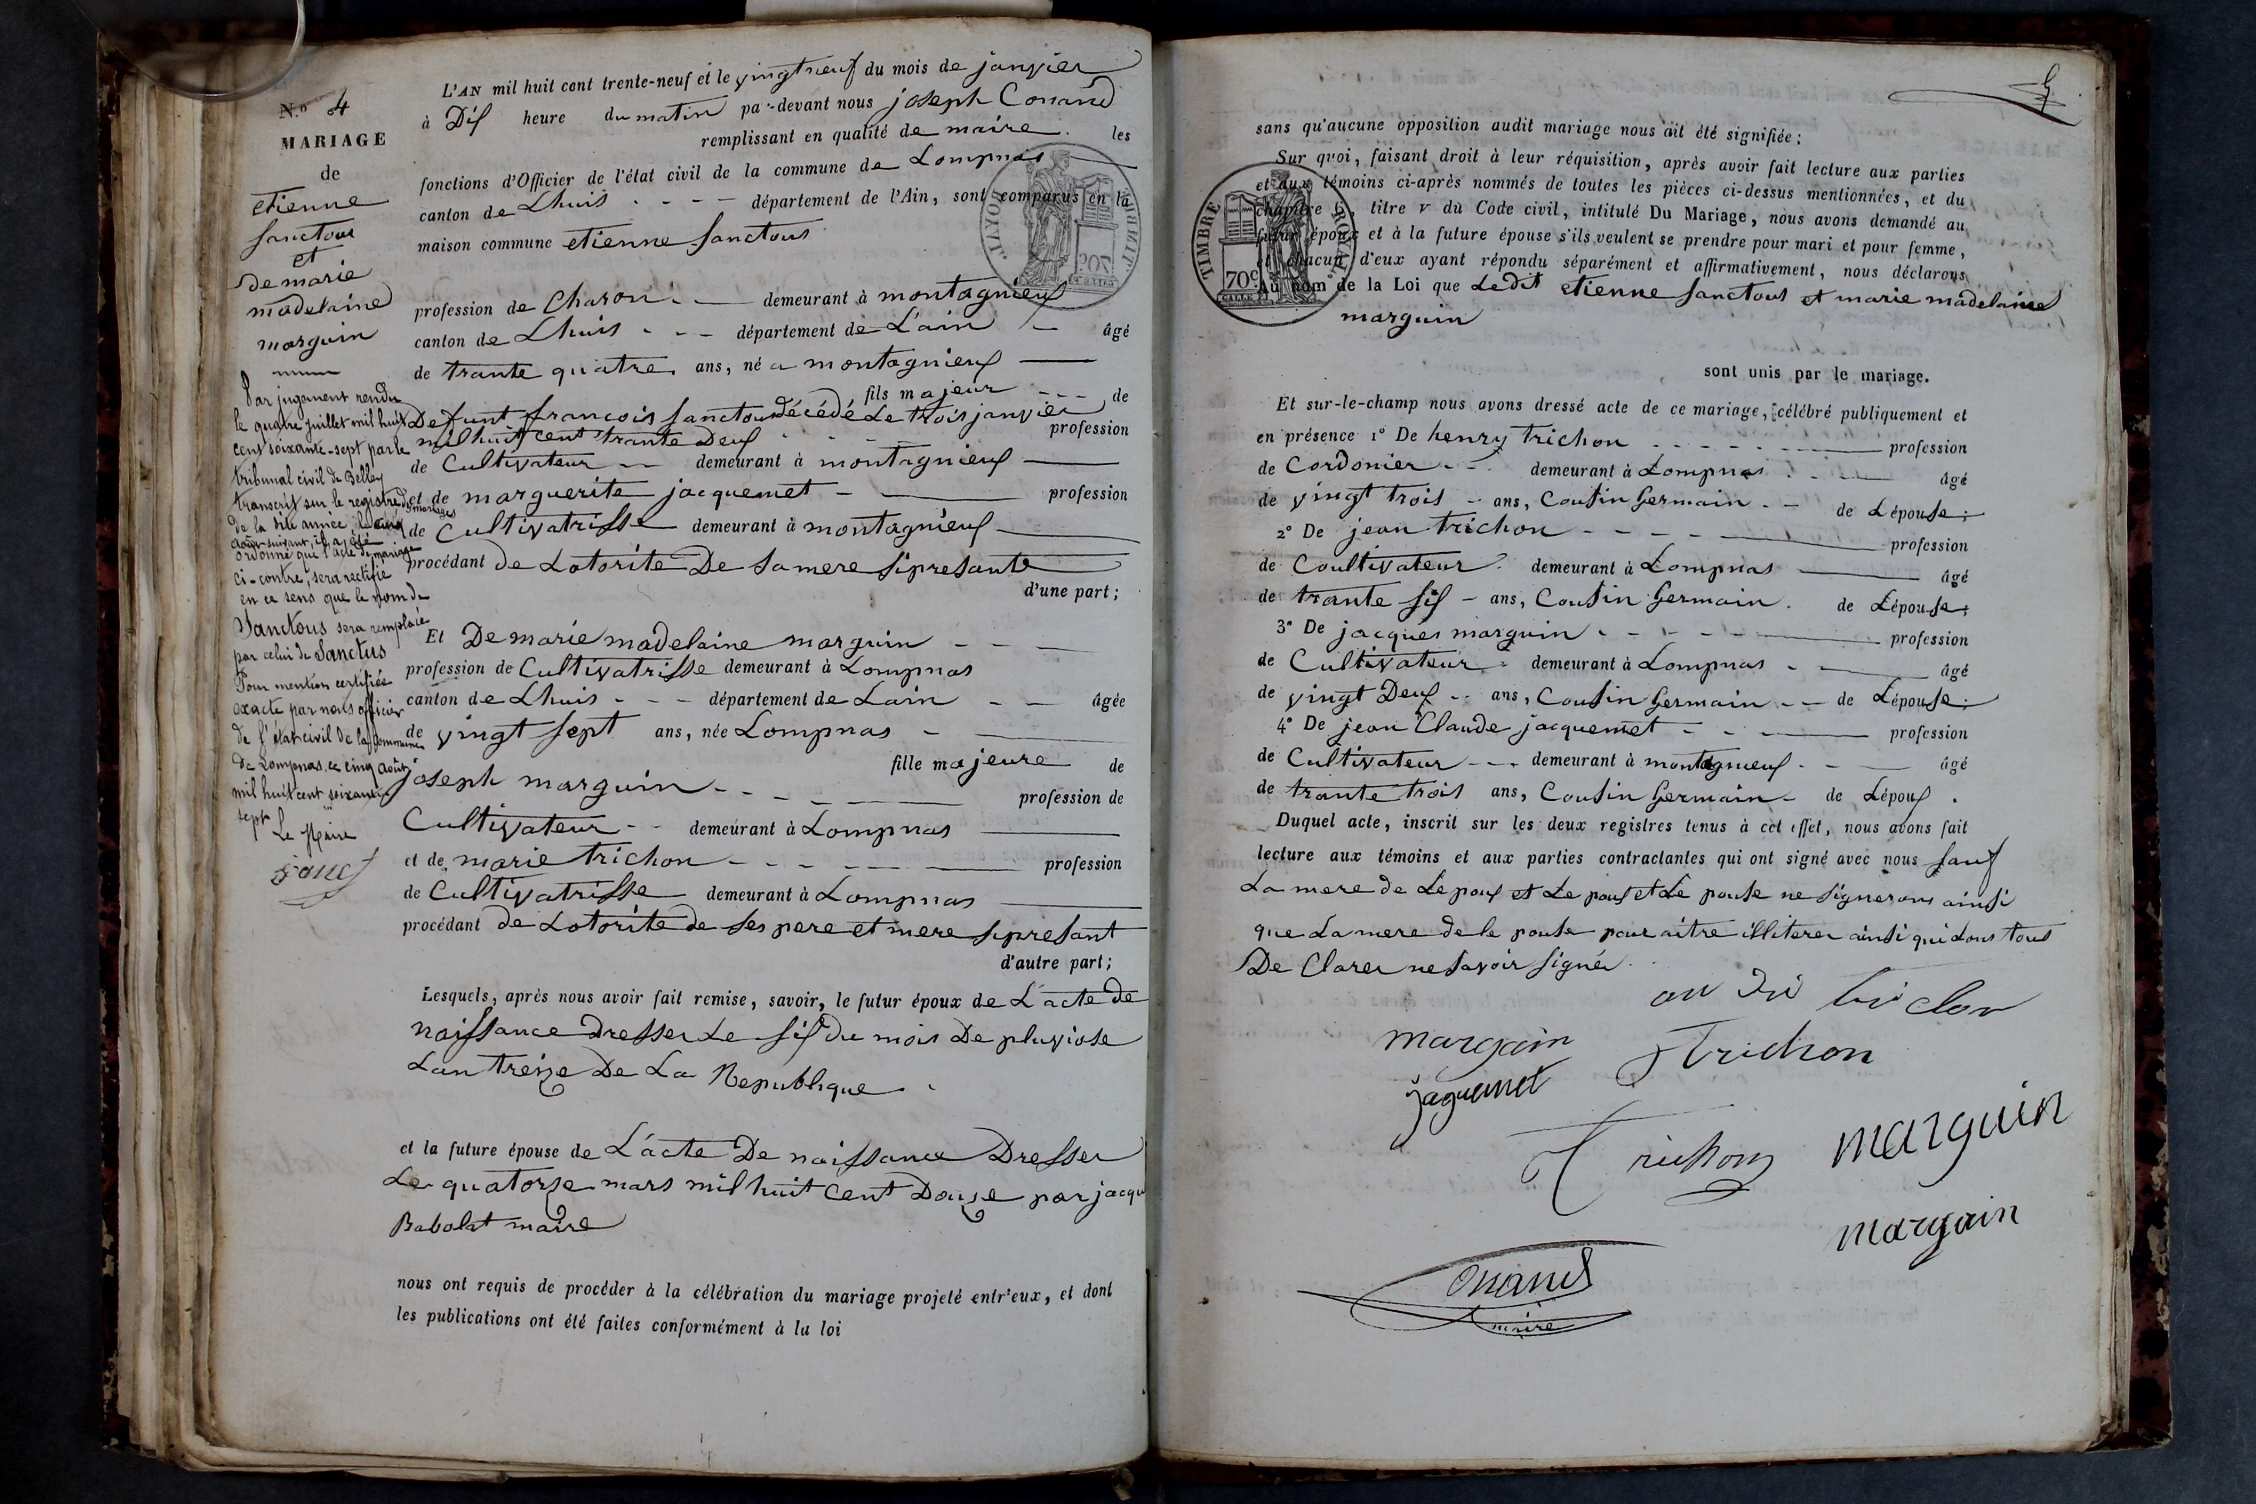 N.o 4
MARIAGE
de
etienne
sanctous
et
De marie
madelaine
marguin
Par jugement rendu
le quatre juillet mil huit
cent soixante-sept par le
tribunal civil de Belley
transcrit sur le registre des mariages
de la dite année le cinq
août suivant, il a été
ordonné que l'acte de mariage
ci-contre, sera rectifié
en ce sens que le nom de
Sanctous sera remplacé
par celui de Sanctus
Pour mention certifiée
exacte par nous officier
de l'état civil de la commune
de Lompnas, ce cinq août
mil huit cent soixante
sept
Le Maire
L'AN mil huit cent trente-neuf et le vingt neuf du mois de janvier
à Dix heure du matin par-devant nous joseph Conand
remplissant en qualité de maire les
fonctions d'Officier de l'état civil de la commune de Lompnas
canton de Lhuis département de l'Ain, sont comparus en la
maison commune etienne sanctous
profession de Charon demeurant à montagnieux
canton de Lhuis département de L'ain âgé
de trante quatre ans, né a montagnieux
fils majeur de
Defunt francois sanctous décédé Le trois janvier
mil huit cent trante Deux profession
de Cultivateur demeurant à montagnieux
et de marguerite jacquemet profession
de Cultivatrisse demeurant à montagnieux
procédant de Lotorite De sa mere si presante
d'une part;
Et De marie madelaine marguin
profession de Cultivatrisse demeurant à Lompnas
canton de Lhuis département de Lain âgée
de vingt sept ans, née Lompnas
fille majeure de
joseph marguin profession de
Cultivateur demeurant à Lompnas
et de marie trichon profession
de Cultivatrisse demeurant à Lompnas
procédant de Lotorite de ses pere et mere si presant
d'autre part;
Lesquels, après nous avoir fait remise, savoir, le futur époux de L'acte de
naissance dresser Le six Du mois De pluviose
Lan treize De La Republique
et la future épouse de L'acte De naissance Dresser
Le quatorze mars mil huit cent Douze par jacque
Babolat maire
nous ont requis de procéder à la célébration du mariage projeté entr'eux, et dont
les publications ont été faites conformément à la loi
sans qu'aucune opposition audit mariage nous ait été signifiée;
Sur quoi, faisant droit à leur réquisition, après avoir fait lecture aux parties
et aux témoins ci-après nommés de toutes les pièces ci-dessus mentionnées, et du
chapitre 6, titre v du Code civil, intitulé Du Mariage, nous avons demandé au
futur époux et à la future épouse s'ils veulent se prendre pour mari et pour femme,
et chacun d'eux ayant répondu séparément et affirmativement, nous déclarons
Au nom de la Loi que Le dit etienne sanctous et marie madelaine
marguin
sont unis par le mariage.
Et sur-le-champ nous avons dressé acte de ce mariage, célébré publiquement et
en présence 1° De henry trichon profession
de Cordonier demeurant à Lompnas âgé
de vingt trois ans, Cousin Germain de Lépouse;
2° De jean trichon profession
de Coultivateur demeurant à Lompnas âgé
de trante six ans, Cousin Germain de Lépouse;
3° De jacques marguin profession
de Cultivateur demeurant à Lompnas âgé
de vingt Deux ans, Cousin Germain de Lépouse;
4° De jean Claude jacquemet profession
de Cultivateur demeurant à montagnieux âgé
de trante trois ans, Cousin Germain de Lépoux.
Duquel acte, inscrit sur les deux registres tenus à cet effet, nous avons fait
lecture aux témoins et aux parties contractantes qui ont signé avec nous sauf
La mere de Le poux et Le poux et Le pouse ne signerons ainsi
que La mere de le pouse pour aitre illiterer ainsi qui Lons tous
De Clarer ne savoir signée
margain
Trichon
Jaquemet
Trichon
marguin
margain
Conand
maire
TIMBRE ROYAL
70c